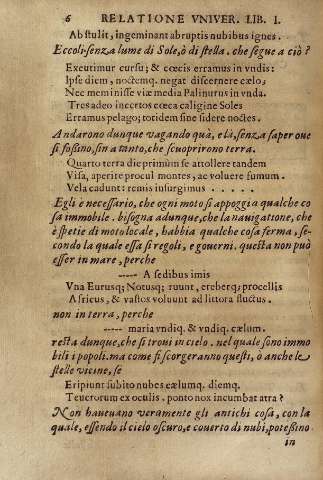 6 RELATIONE VNIVER. LIB. I.
Abstulit, ingeminant abruptis nubibus ignes.
Eccoli senza lume di Sole, ò di stella. che segue a ciò?
Excutimur cursu; & cœcis erramus in vndis:
Ipse diem, noctemq. negat discernere cælo,
Nec meminisse viæ media Palinurus in vnda.
Tres adeo incertos cœca caligine Soles
Erramus pelago; totidem sine sidere noctes.
Andarono dunque vagando quà, e là, senza saper oue
si fossino, sin a tanto, che scuoprirono terra.
Quarto terra die primùm se attollere tandem
Visa, aperite procul montes, ac voluere fumum.
Vela cadunt: remis insurgimus . . . . .
Egli è necessario, che ogni moto si appoggi a qualche co
sa immobile. bisogna adunque, che la nauigatione, che
è spetie di moto locale, habbia qualche cosa ferma, se-
condo la quale essa si regoli, e gouerni. questa non può
esser in mare, perche
----- A sedibus imis
Vna Eurusq; Notusq; ruunt, ereberq; procellis
Africus, & vastos voluunt ad littora fluctus.
non in terra, perche
----- maria vndiq. & vndiq. cælum.
resta dunque, che si troui in cielo. nel quale sono immo
bili i popoli. ma come si scorgeranno questi, ò anche le
stelle vicine, se
Eripiunt subito nubes cælumq. diemq.
Teucrorum ex oculis. ponto nox incumbat atra?
Non haueuano veramente gli antichi cosa, con la
quale, essendo il cielo oscuro, e couerto di nubi, potessino
in